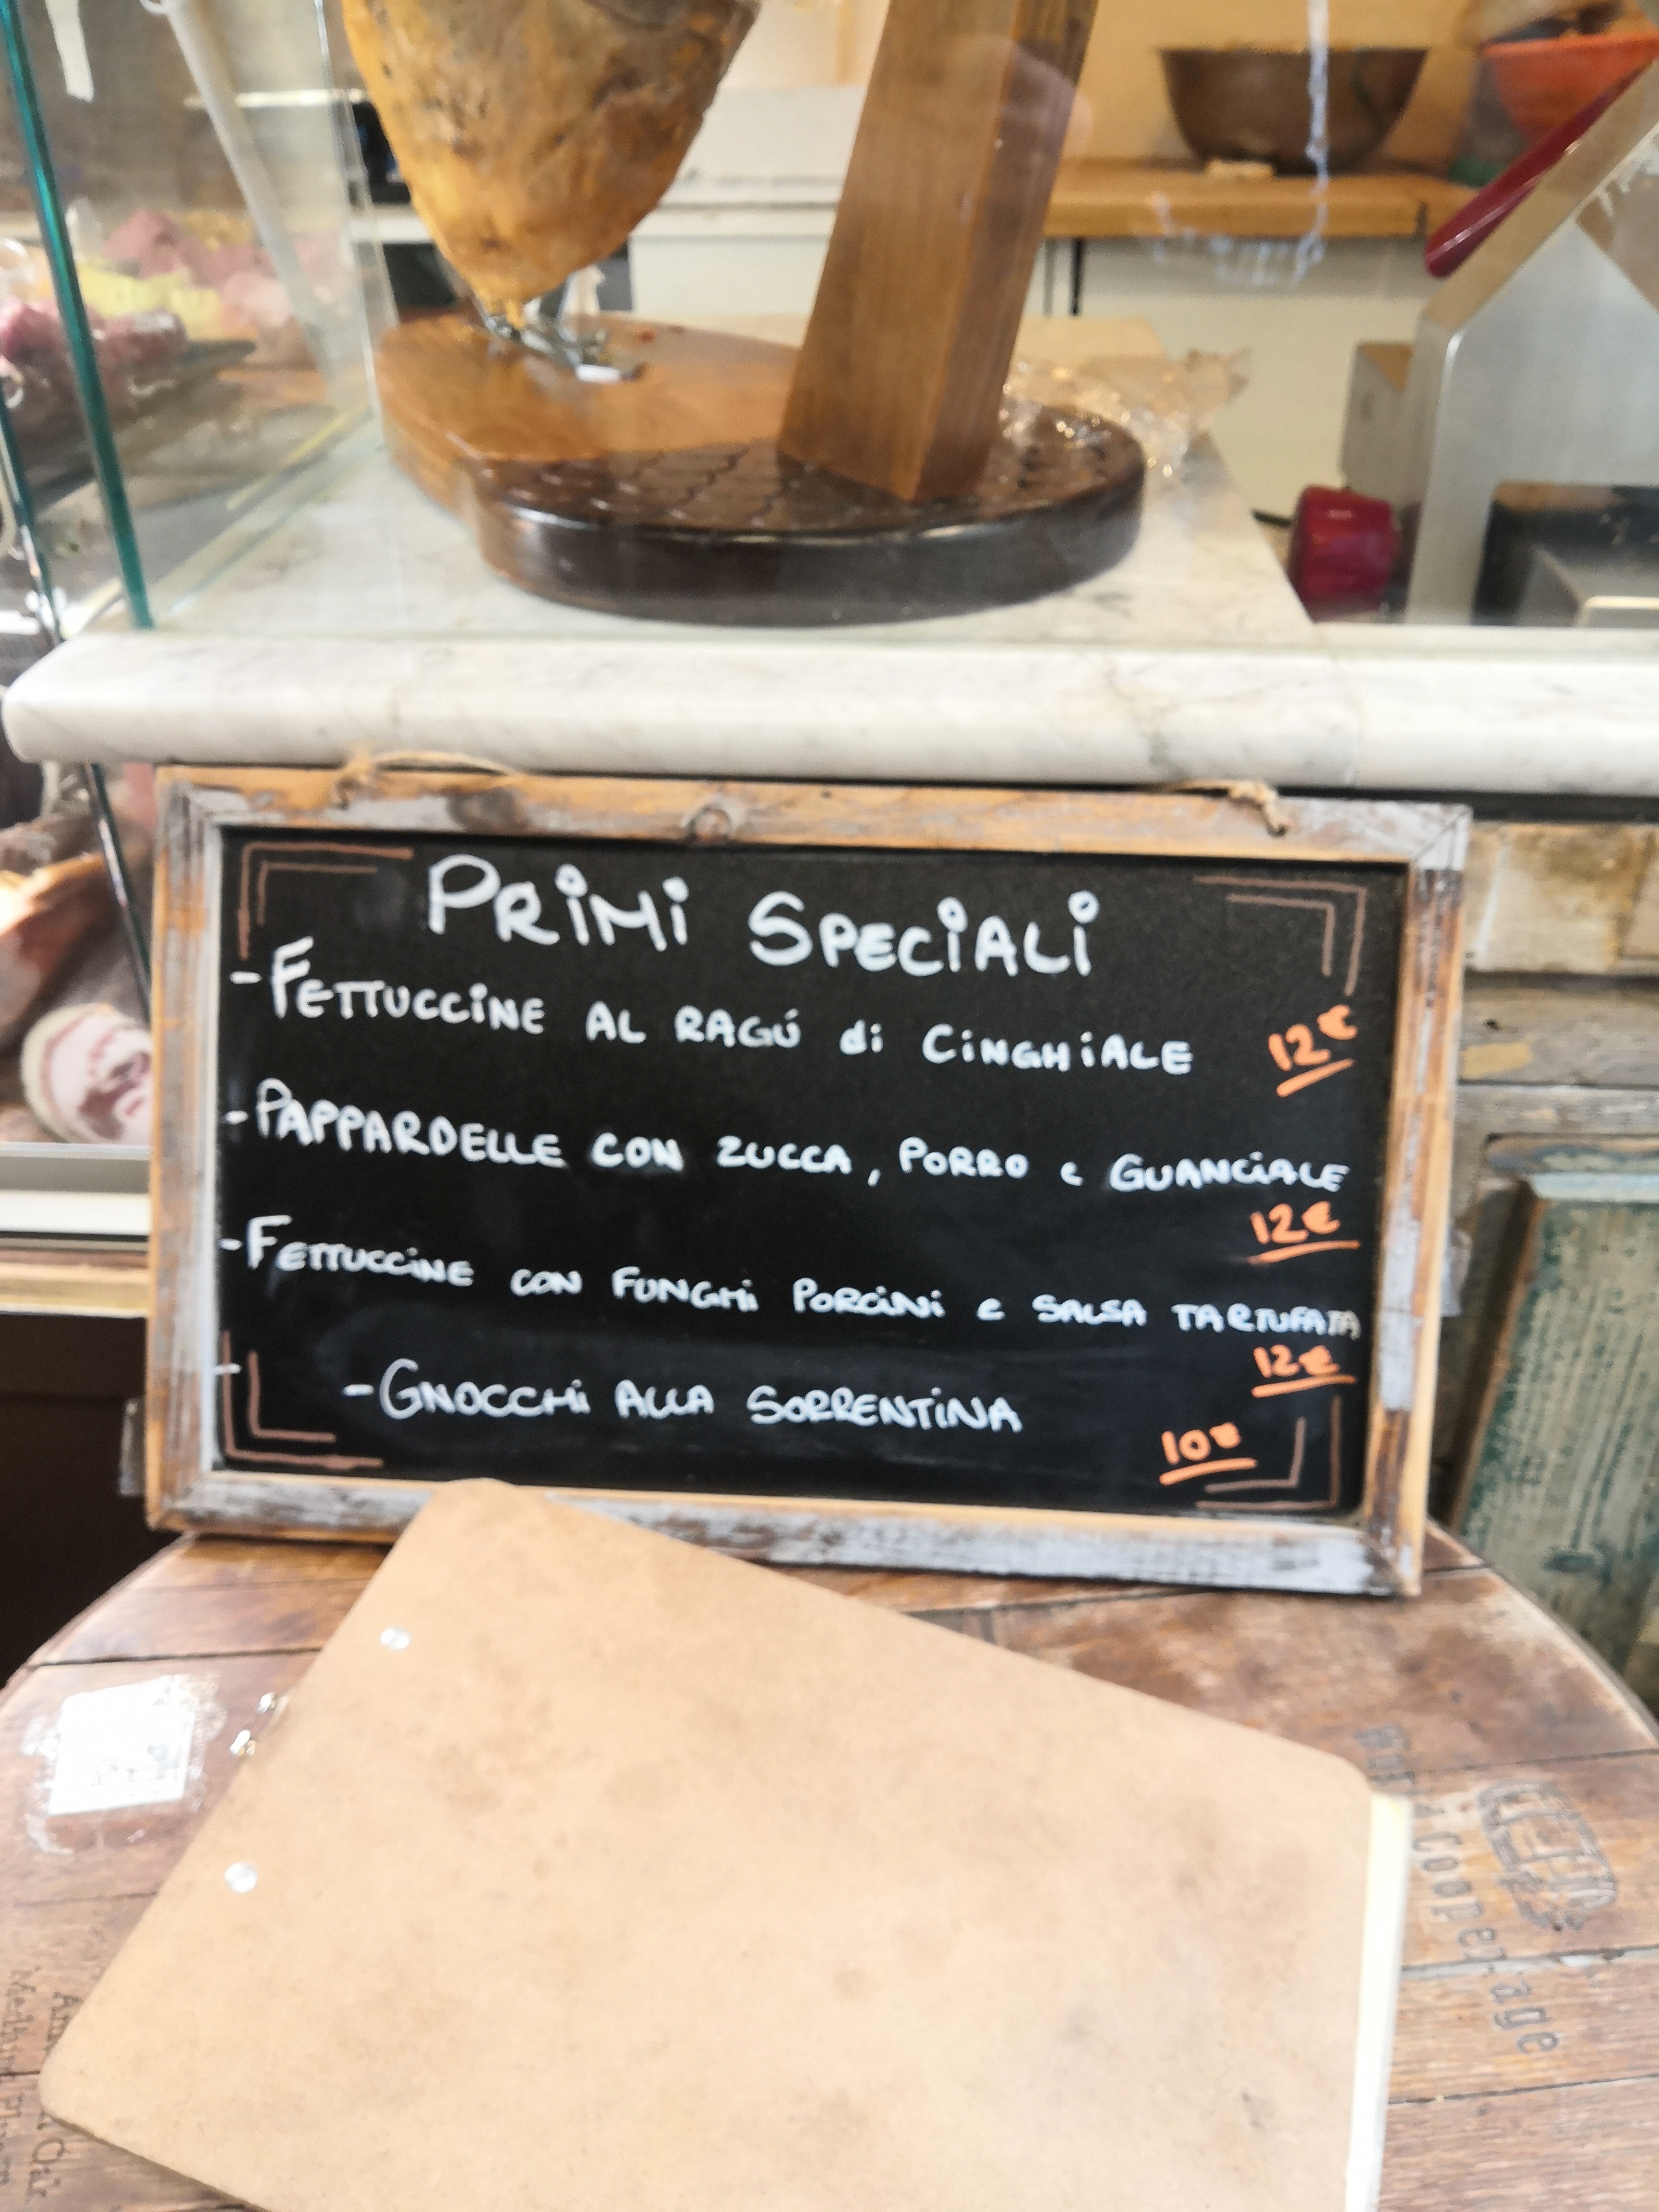 PRIMI SPECIALI
- FETTUCCINE AL RAGÚ di CINGHIALE 12€
- PAPPARDELLE CON ZUCCA, PORRO e GUANCIALE
12€
- FETTUCCINE CON FUNGHI PORCINI e SALSA TARTUFATA
12€
- - GNOCCHI ALLA SORRENTINA
10€
cooperage